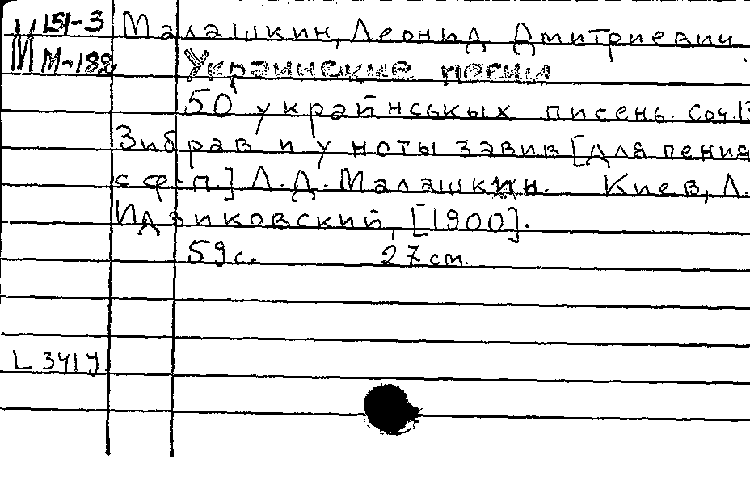 М 151-3 Малашкин, Леонид Дмитриевич.
М-188 Украинские песни
50 украінськых писень. Соч.
Зибрав и у ноты завив [Для пения
с ф-п.] Л.Д. Малашкин. Киев, Л.
Идзиковский, [1900].
59 с. 27 cm.
L 3419